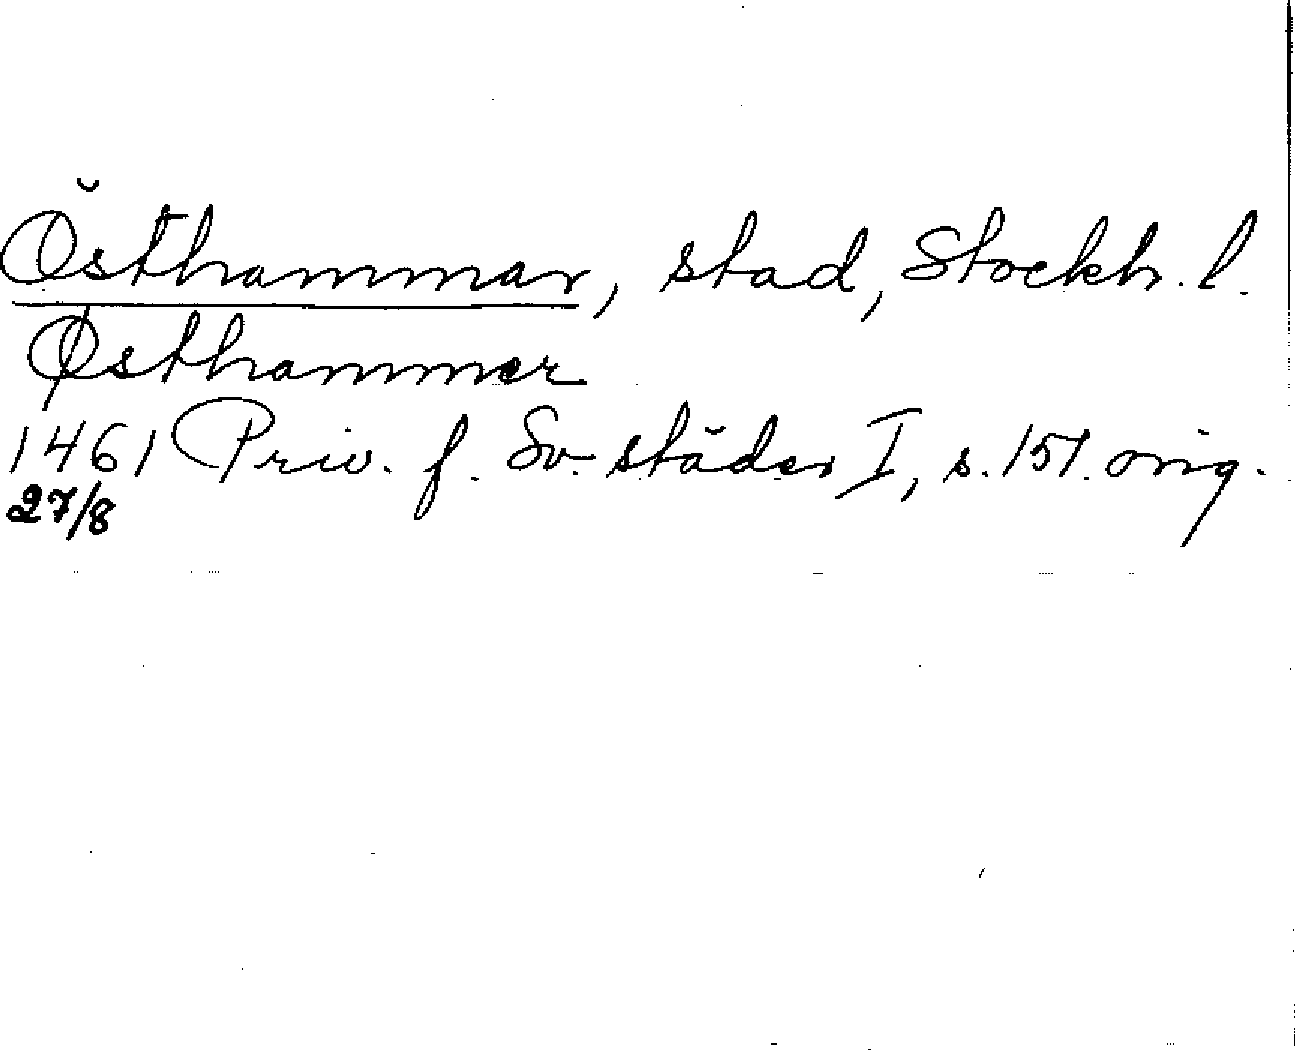 Östhammar, stad, Stockh. l.
Østhammer
1461 Priv. f. Sv. städer I, s. 157. orig.
27/8